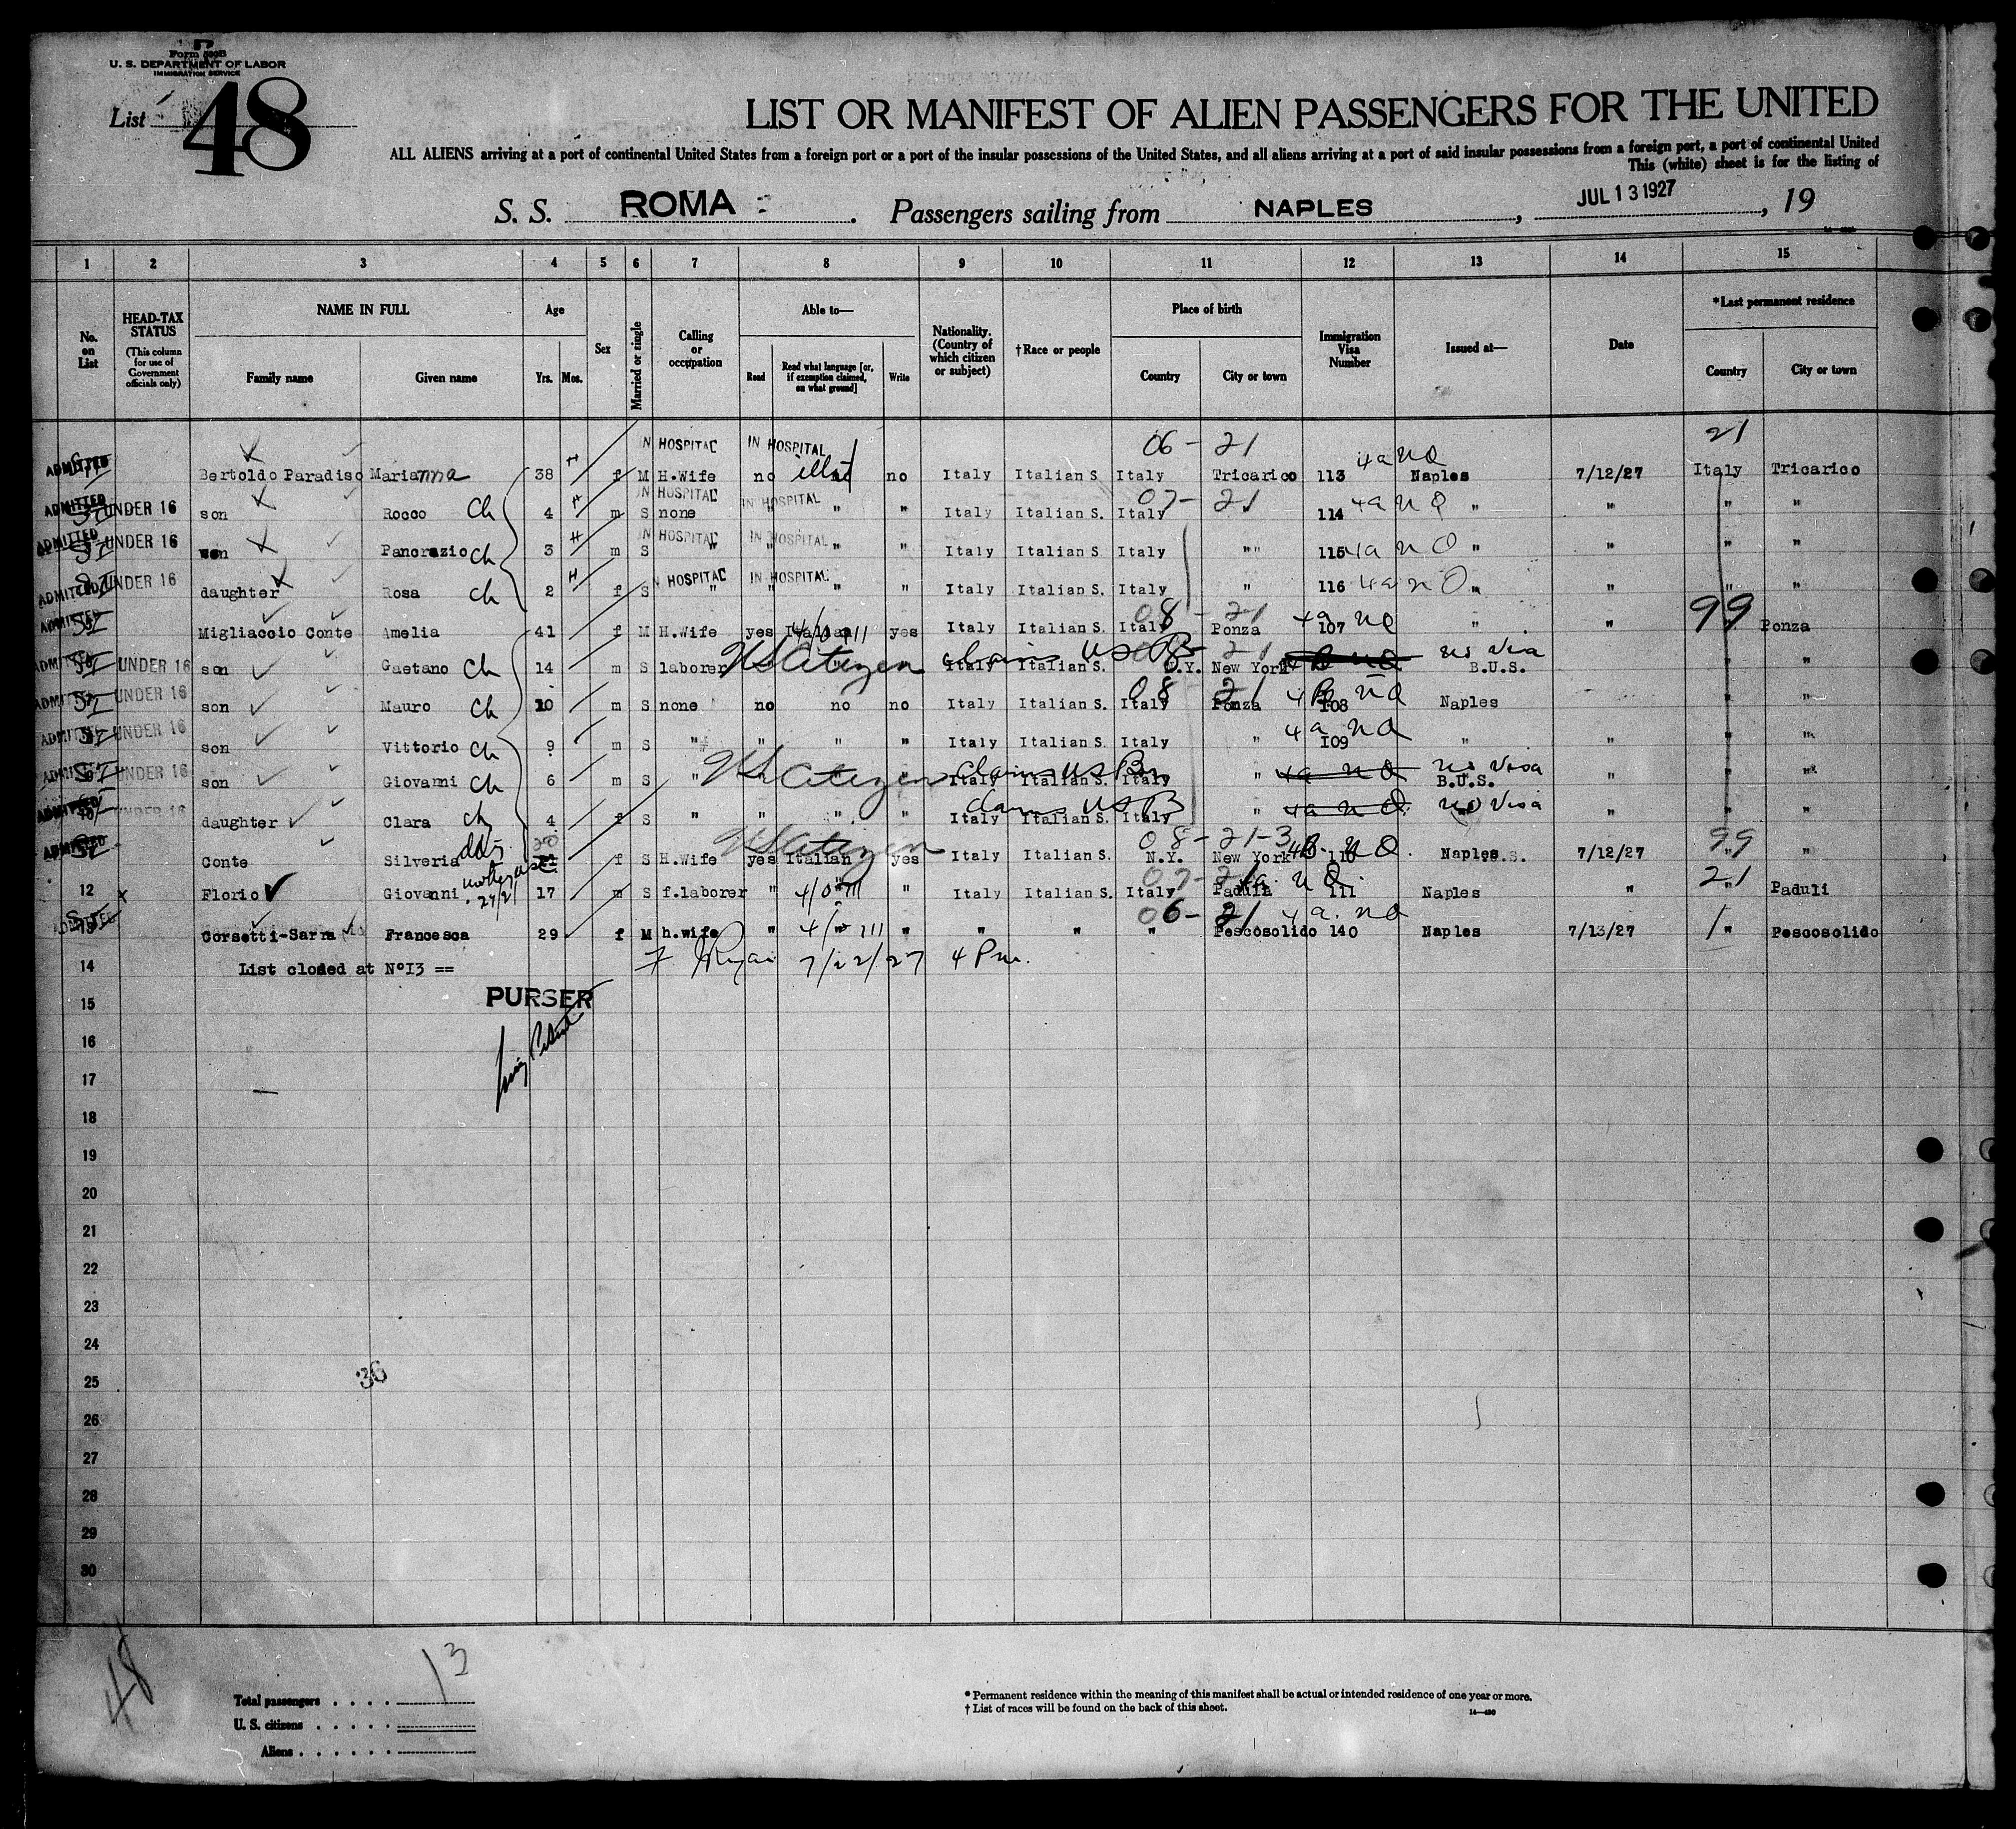 Form 500B
U. S. DEPARTMENT OF LABOR
IMMIGRATION SERVICE
List 48
LIST OR MANIFEST OF ALIEN PASSENGERS FOR THE UNITED
ALL ALIENS arriving at a port of continental United States from a foreign port or a port of the insular possessions of the United States, and all aliens arriving at a port of said insular possessions from a foreign port, a port of continental United
This (white) sheet is for the listing of
S. S. ROMA . Passengers sailing from NAPLES , JUL 13 1927 , 19
1 2 3 4 5 6 7 8 9 10 11 12 13 14 15
No. on List
HEAD-TAX STATUS (This column for use of Government officials only)
NAME IN FULL Family name Given name
Age Yrs. Mos.
Sex
Married or single
Calling or occupation
Able to— Read Read what language [or, if exemption claimed, on what ground] Write
Nationality. (Country of which citizen or subject)
†Race or people
Place of birth Country City or town
Immigration Visa Number
Issued at—
Date
*Last permanent residence Country City or town
IN HOSPITAL IN HOSPITAL 06 - 21 4a nQ 21
ADMITTED Bertoldo Paradiso Marianna 38 f M H.Wife no no Italy Italian S. Italy Tricarico 113 Naples 7/12/27 Italy Tricarico
IN HOSPITAL IN HOSPITAL 07 - 21
ADMITTED UNDER 16 son Rocco ch 4 m S none " " " Italy Italian S. Italy " 114 4a nQ " " " "
IN HOSPITAL IN HOSPITAL
ADMITTED UNDER 16 son Pancrazio ch 3 m S " " " " Italy Italian S. Italy "" 115 4a nQ " " " "
IN HOSPITAL IN HOSPITAL
ADMITTED UNDER 16 daughter Rosa ch 2 f S " " " " Italy Italian S. Italy " 116 4a nQ " " " "
08 - 21 4a nQ 99
ADMITTED Migliaccio Conte Amelia 41 f M H.Wife yes Italian yes Italy Italian S. Italy Ponza 107 " " " Ponza
US Citizen claims US B no Visa
ADMITTED UNDER 16 son Gaetano ch 14 m S laborer Italy Italian S. N.Y. New York B.U.S. " "
08 - 21 4a nQ
ADMITTED UNDER 16 son Mauro ch 10 m S none no no no Italy Italian S. Italy Ponza 108 Naples " "
4a nQ
ADMITTED UNDER 16 son Vittorio ch 9 m S " " " " Italy Italian S. Italy " 109 " " " "
US Citizen claims US B 4a nQ no Visa
ADMITTED UNDER 16 son Giovanni ch 6 m S " Italy Italian S. Italy " B.U.S. " " "
claims US B 4a nQ no Visa
ADMITTED UNDER 16 daughter Clara ch 4 f S " " " " Italy Italian S. Italy " " " "
US Citizen 08-21-3 nQ 99
ADMITTED Conte Silveria 20 f S H.Wife yes Italian yes Italy Italian S. N.Y. New York 110 Naples 7/12/27 " "
07-21 4a nQ 21
12 Florio Giovanni 17 m S f.laborer " " " Italy Italian S. Italy Paduli 111 Naples " " Paduli
06 - 21 4a nQ
ADMITTED 13 Corsetti-Sarra Francesca 29 f M h.wife " " " " " " Pescosolido 140 Naples 7/13/27 " Pescosolido
14 List closed at N°I3 == 7/22/27 4 Pm.
PURSER
15
16
17
18
19
20
21
22
23
24
36
25
26
27
28
29
30
48
13
Total passengers
U. S. citizens
Aliens
* Permanent residence within the meaning of this manifest shall be actual or intended residence of one year or more.
† List of races will be found on the back of this sheet.
14—430